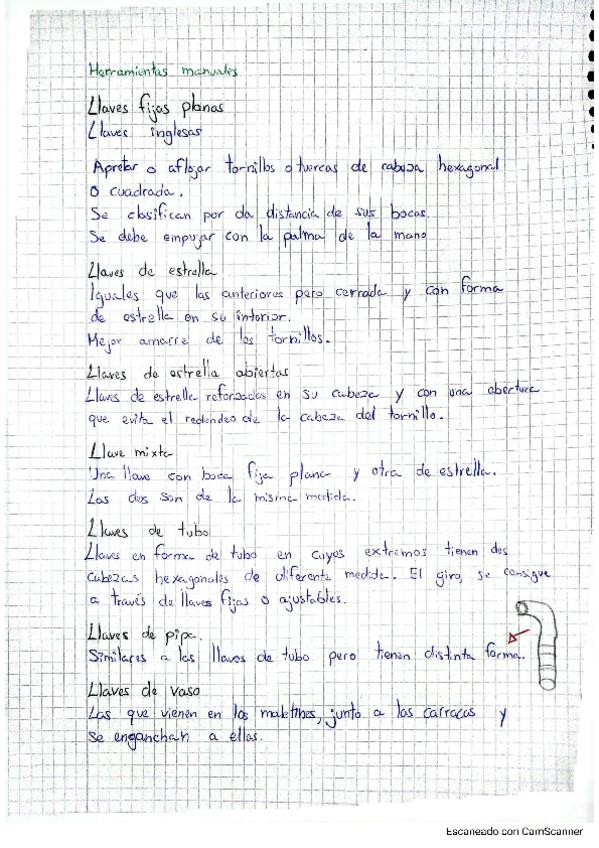 Herramientas manuales
Llaves fijas planas
Llaves inglesas
Apretar o aflojar tornillos o tuercas de cabeza hexagonal
o cuadrada.
Se clasifican por da distancia de sus bocas.
Se debe empujar con la palma de la mano
Llaves de estrella
Iguales que las anteriores pero cerrada y con forma
de estrella en su interior.
Mejor amarre de los tornillos.
Llaves de estrella abiertas
Llaves de estrella reforzadas en su cabeza y con una abertura
que evita el redondeo de la cabeza del tornillo.
Llave mixta
Una llave con boca fija plana y otra de estrella.
Las dos son de la misma medida.
Llaves de tubo
Llaves en forma de tubo en cuyos extremos tienen dos
cabezas hexagonales de diferente medida. El giro, se consigue
a través de llaves fijas o ajustables.
Llaves de pipa.
Similares a las llaves de tubo pero tienen distinta forma.
Llaves de vaso
Las que vienen en los maletines, junto a las carracas y
se enganchan a ellas.
Escaneado con CamScanner